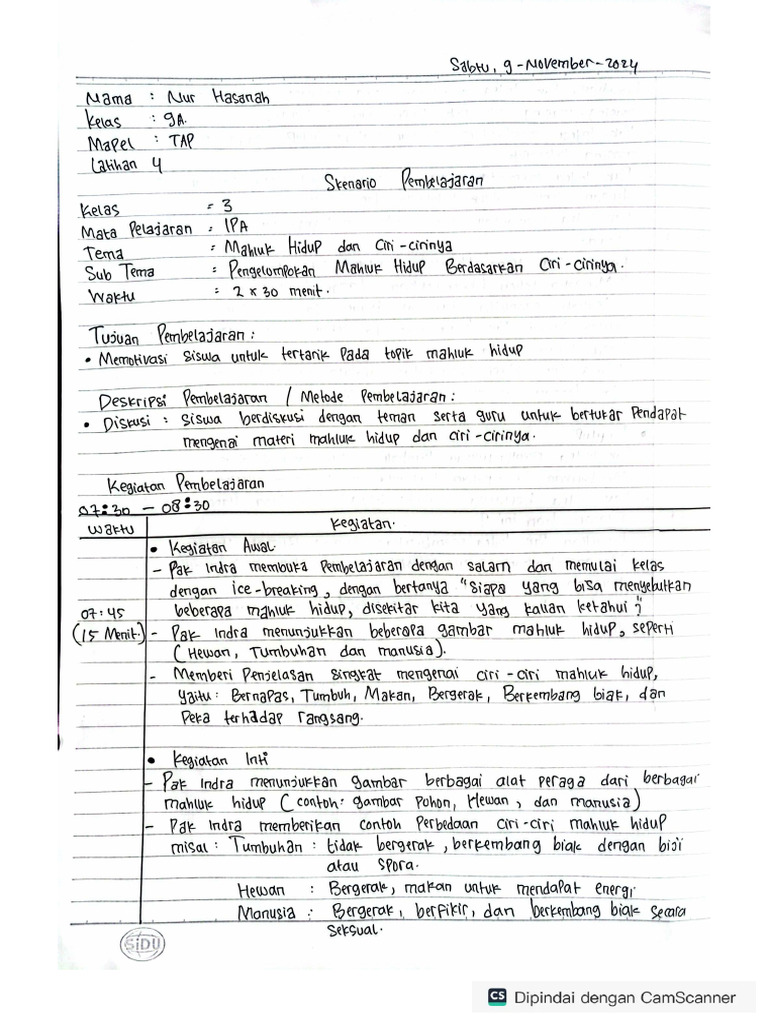 Sabtu, 9 - November - 2024
Nama : Nur Hasanah
Kelas : 9A.
Mapel : TAP
Latihan 4
Skenario Pembelajaran
Kelas = 3
Mata Pelajaran : IPA
Tema : Mahluk Hidup dan Ciri-cirinya
Sub Tema : Pengelompokan Mahluk Hidup Berdasarkan Ciri-cirinya.
Waktu : 2 x 30 menit.
Tujuan Pembelajaran :
• Memotivasi siswa untuk tertarik pada topik mahluk hidup
Deskripsi Pembelajaran / Metode Pembelajaran :
• Diskusi : siswa berdiskusi dengan teman serta guru untuk bertukar Pendapat
mengenai materi mahluk hidup dan ciri-cirinya.
Kegiatan Pembelajaran
07:30 - 08:30
Waktu Kegiatan.
• Kegiatan Awal.
- Pak Indra membuka Pembelajaran dengan salam dan memulai kelas
dengan ice-breaking, dengan bertanya "siapa yang bisa menyebutkan
07:45 beberapa mahluk hidup, disekitar kita yang kalian ketahui ?"
(15 Menit) - Pak Indra menunjukkan beberapa gambar mahluk hidup, seperti
(Hewan, Tumbuhan dan manusia).
- Memberi Penjelasan singkat mengenai ciri-ciri mahluk hidup,
yaitu : Bernapas, Tumbuh, Makan, Bergerak, Berkembang biak, dan
Peka terhadap rangsang.
• Kegiatan Inti
- Pak Indra menunjukkan gambar berbagai alat peraga dari berbagai
mahluk hidup (contoh: gambar Pohon, Hewan, dan manusia)
- Pak Indra memberikan contoh Perbedaan ciri-ciri mahluk hidup
misal : Tumbuhan : tidak bergerak, berkembang biak dengan biji
atau spora.
Hewan : Bergerak, makan untuk mendapat energi
Manusia : Bergerak, berfikir, dan berkembang biak secara
seksual.
SIDU
CS Dipindai dengan CamScanner